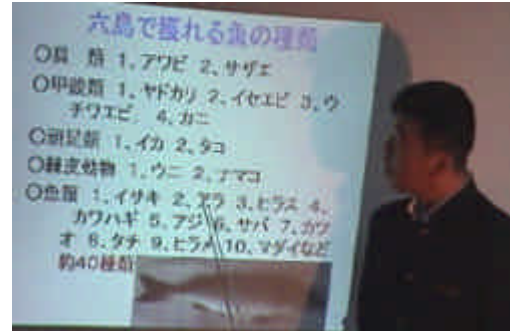 六島で獲れる魚の種類
○貝 類 1、アワビ 2、サザエ
○甲殻類 1、ヤドカリ 2、イセエビ 3、ウ
チワエビ 4、カニ
○頭足類 1、イカ 2、タコ
○棘皮動物 1、ウニ 2、ナマコ
○魚類 1、イサキ 2、アラ 3、ヒラス 4、
カワハギ 5、アジ 6、サバ 7、カツ
オ 8、タチ 9、ヒラメ 10、マダイなど
約40種類